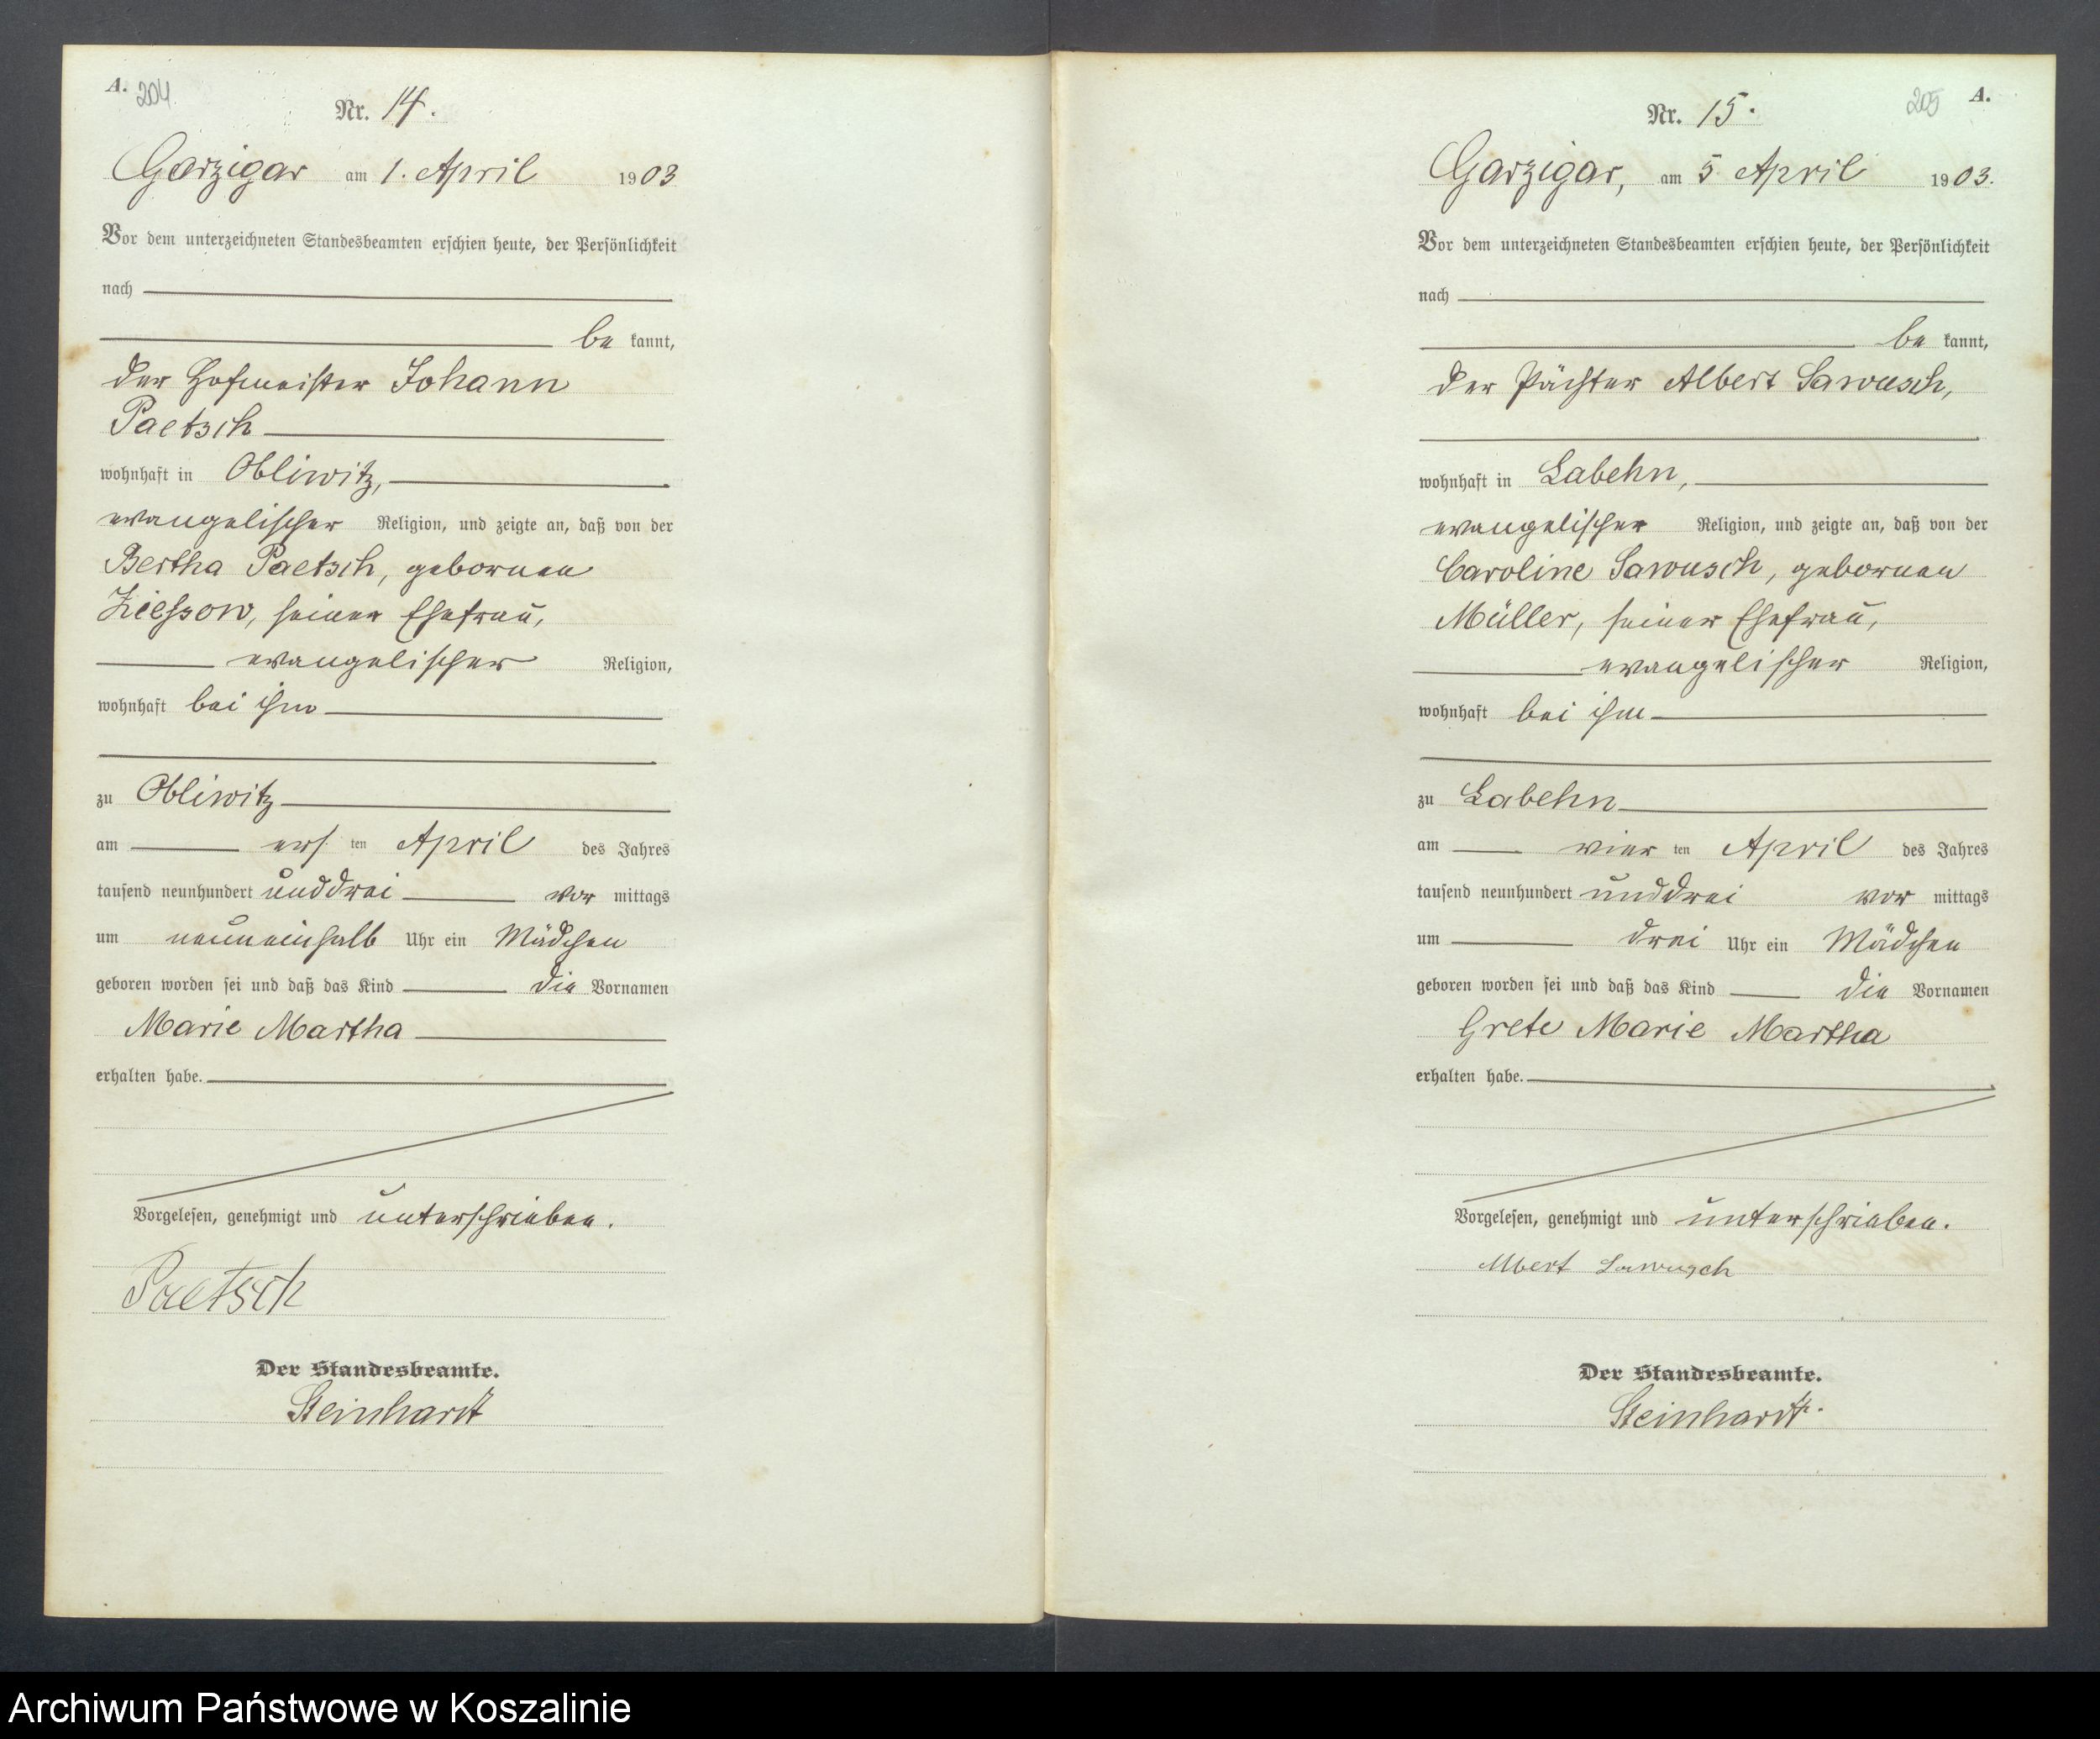 A. 204
Nr. 14.
Garzigar am 1. April 1903
Vor dem unterzeichneten Standesbeamten erschien heute, der Persönlichkeit
nach
be kannt,
der Hofmeister Johann
Paetsch
wohnhaft in Obliwitz,
evangelischer Religion, und zeigte an, daß von der
Bertha Paetsch, gebornen
Ziessow, seiner Ehefrau,
evangelischer Religion,
wohnhaft bei ihm
zu Obliwitz
am ers ten April des Jahres
tausend neunhundert unddrei vor mittags
um neuneinhalb Uhr ein Mädchen
geboren worden sei und daß das Kind die Vornamen
Marie Martha
erhalten habe.
Vorgelesen, genehmigt und unterschrieben.
Paetsch
Der Standesbeamte.
Steinhardt
205 A.
Nr. 15.
Garzigar, am 5 April 1903.
Vor dem unterzeichneten Standesbeamten erschien heute, der Persönlichkeit
nach
be kannt,
der Pächter Albert Sawusch,
wohnhaft in Labehn,
evangelischer Religion, und zeigte an, daß von der
Caroline Sawusch, gebornen
Müller, seiner Ehefrau,
evangelischer Religion,
wohnhaft bei ihm
zu Labehn
am vier ten April des Jahres
tausend neunhundert unddrei vor mittags
um drei Uhr ein Mädchen
geboren worden sei und daß das Kind die Vornamen
Grete Marie Martha
erhalten habe.
Vorgelesen, genehmigt und unterschrieben.
Albert Sawusch
Der Standesbeamte.
Steinhardt.
Archiwum Państwowe w Koszalinie